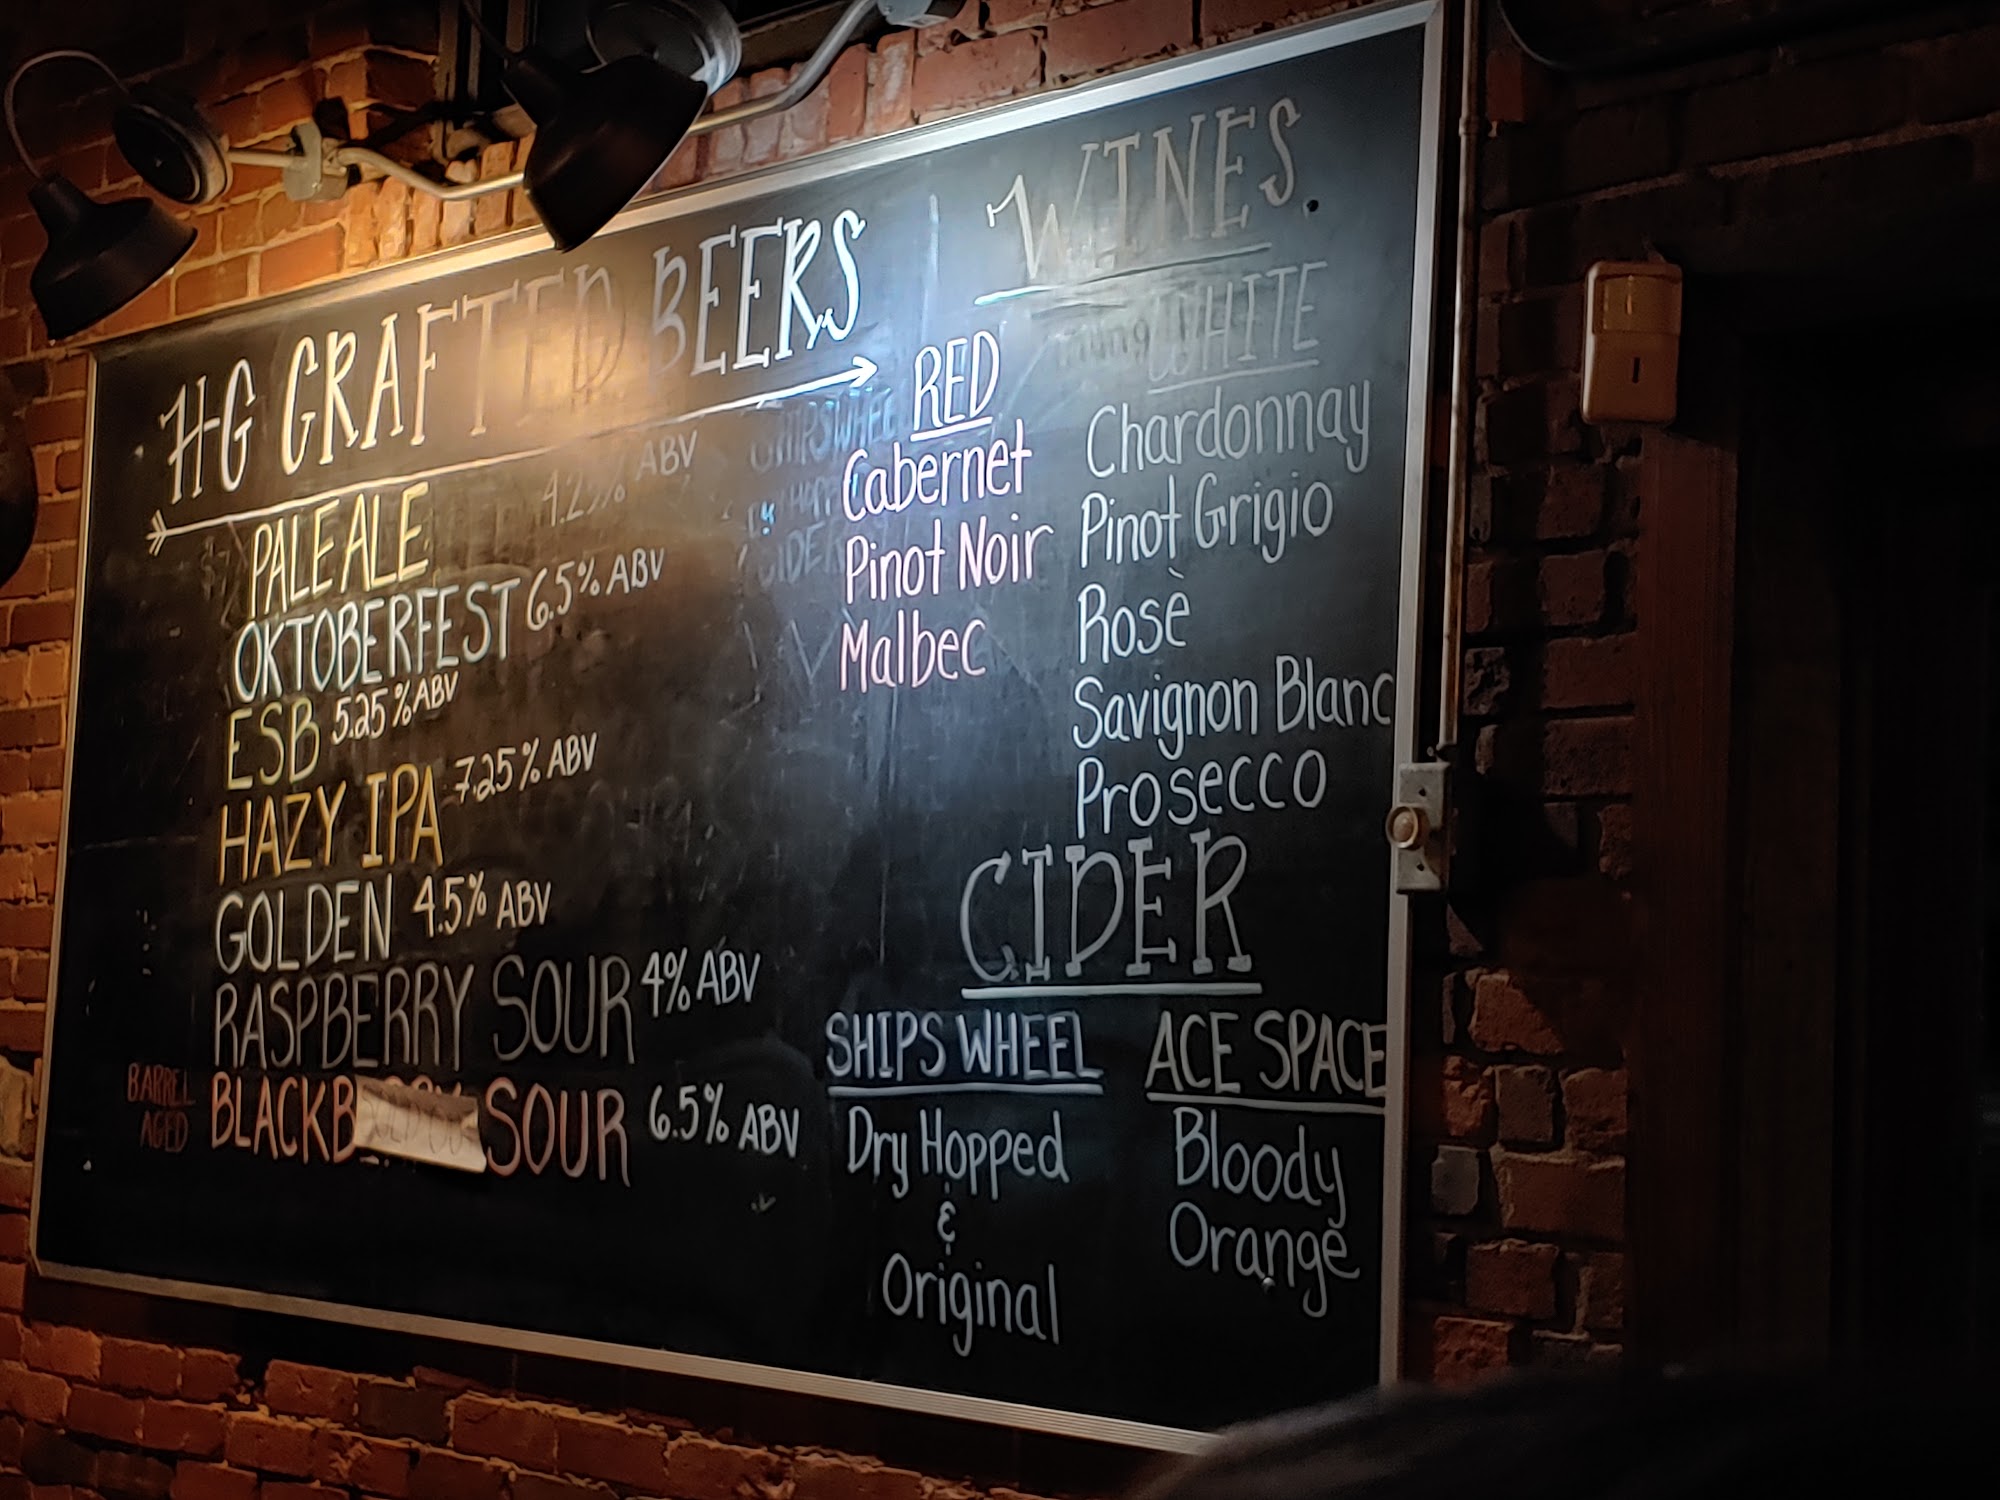 HG GRAFTED BEERS
PALE ALE 4.25% ABV
OKTOBERFEST 6.5% ABV
ESB 5.25% ABV
HAZY IPA 7.25% ABV
GOLDEN 4.5% ABV
RASPBERRY SOUR 4% ABV
BARREL
AGED
BLACKB SOUR 6.5% ABV
WINES
RED
Cabernet
Pinot Noir
Malbec
WHITE
Chardonnay
Pinot Grigio
Rosè
Savignon Blanc
Prosecco
CIDER
SHIPS WHEEL
Dry Hopped
&
Original
ACE SPACE
Bloody
Orange